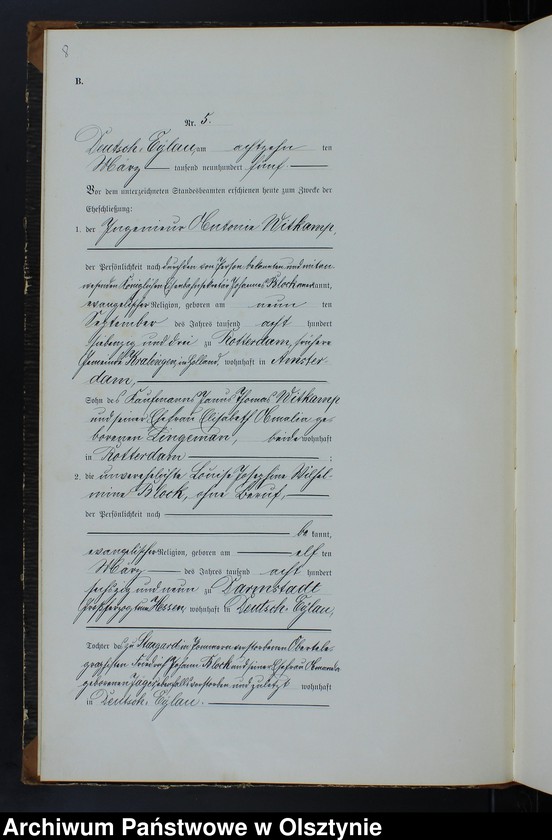 8
B.
Nr. 5.
Deutsch-Eylau, am achtzehn ten
März tausend neunhundert fünf.
Vor dem unterzeichneten Standesbeamten erschienen heute zum Zwecke der
Eheschließung:
1. der Ingenieur Antonie Witkamp,
der Persönlichkeit nach durch den von Person bekannten und mitan-
wesenden Königlichen Eisenbahnsekretär Johannes Block anerkannt,
evangelischer Religion, geboren am neun ten
September des Jahres tausend acht hundert
siebenzig und drei zu Rotterdam, frühere
Gemeinde Kralingen, in Holland, wohnhaft in Amster-
dam,
Sohn des Kaufmanns Janus Thomas Witkamp
und seiner Ehefrau Elisabeth Amalia ge-
borenen Lingeman, beide wohnhaft
in Rotterdam ;
2. die unverehelichte Louise Josephine Wilhel-
mine Block, ohne Beruf,
der Persönlichkeit nach
be kannt,
evangelischer Religion, geboren am elf ten
März des Jahres tausend acht hundert
sechszig und neun zu Darmstadt
Großherzogtum Hessen, wohnhaft in Deutsch-Eylau,
Tochter des zu Stargard in Pommern verstorbenen Obertele-
graphisten Friedrich Johann Block und seiner Ehefrau Amanda
geborenen ebenfalls verstorben und zuletzt wohnhaft
in Deutsch-Eylau.
Archiwum Państwowe w Olsztynie